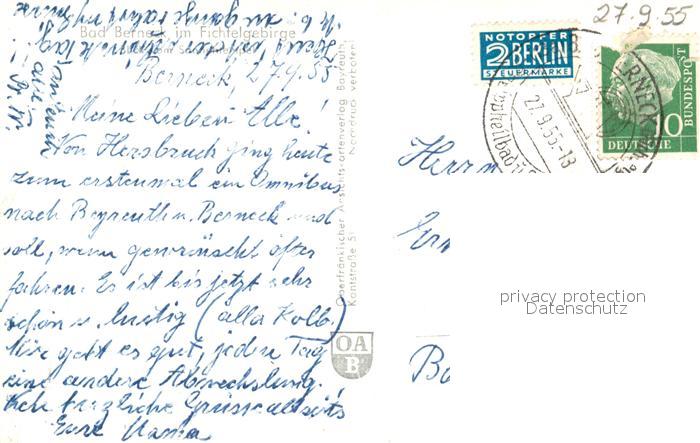 27.9.55
Bad Berneck im Fichtelgebirge
Berneck, 27.9.55
Meine Lieben Alle!
Von Hersbruck ging heute
zum erstenmal ein Omnibus
nach Bayreuth u. Berneck und
soll, wenn gewünscht öfter
fahren. Es ist bis jetzt sehr
schön u. lustig (alla Kolb.)
Mir geht es gut, jeden Tag
eine andere Abwechslung.
herzliche Grüsse allseits
Eure Mama
Oberfränkischer Ansichtskartenverlag Bayreuth,
Kantstraße 5
Nachdruck verboten
OA
B
NOTOPFER
2 BERLIN
STEUERMARKE
27.9.55-13
BERNECK
10
DEUTSCHE
BUNDESPOST
Herrn
privacy protection
Datenschutz